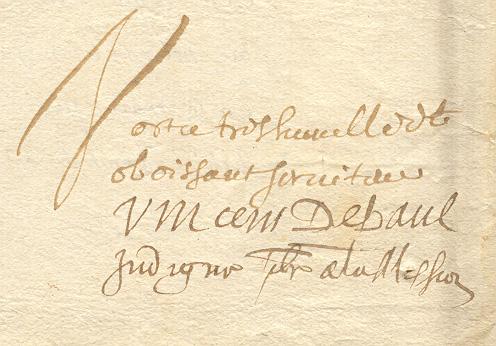 Vostre tres humble et
oboissant seruiteur
Vincent Depaul
Indigne pbre de la Mission